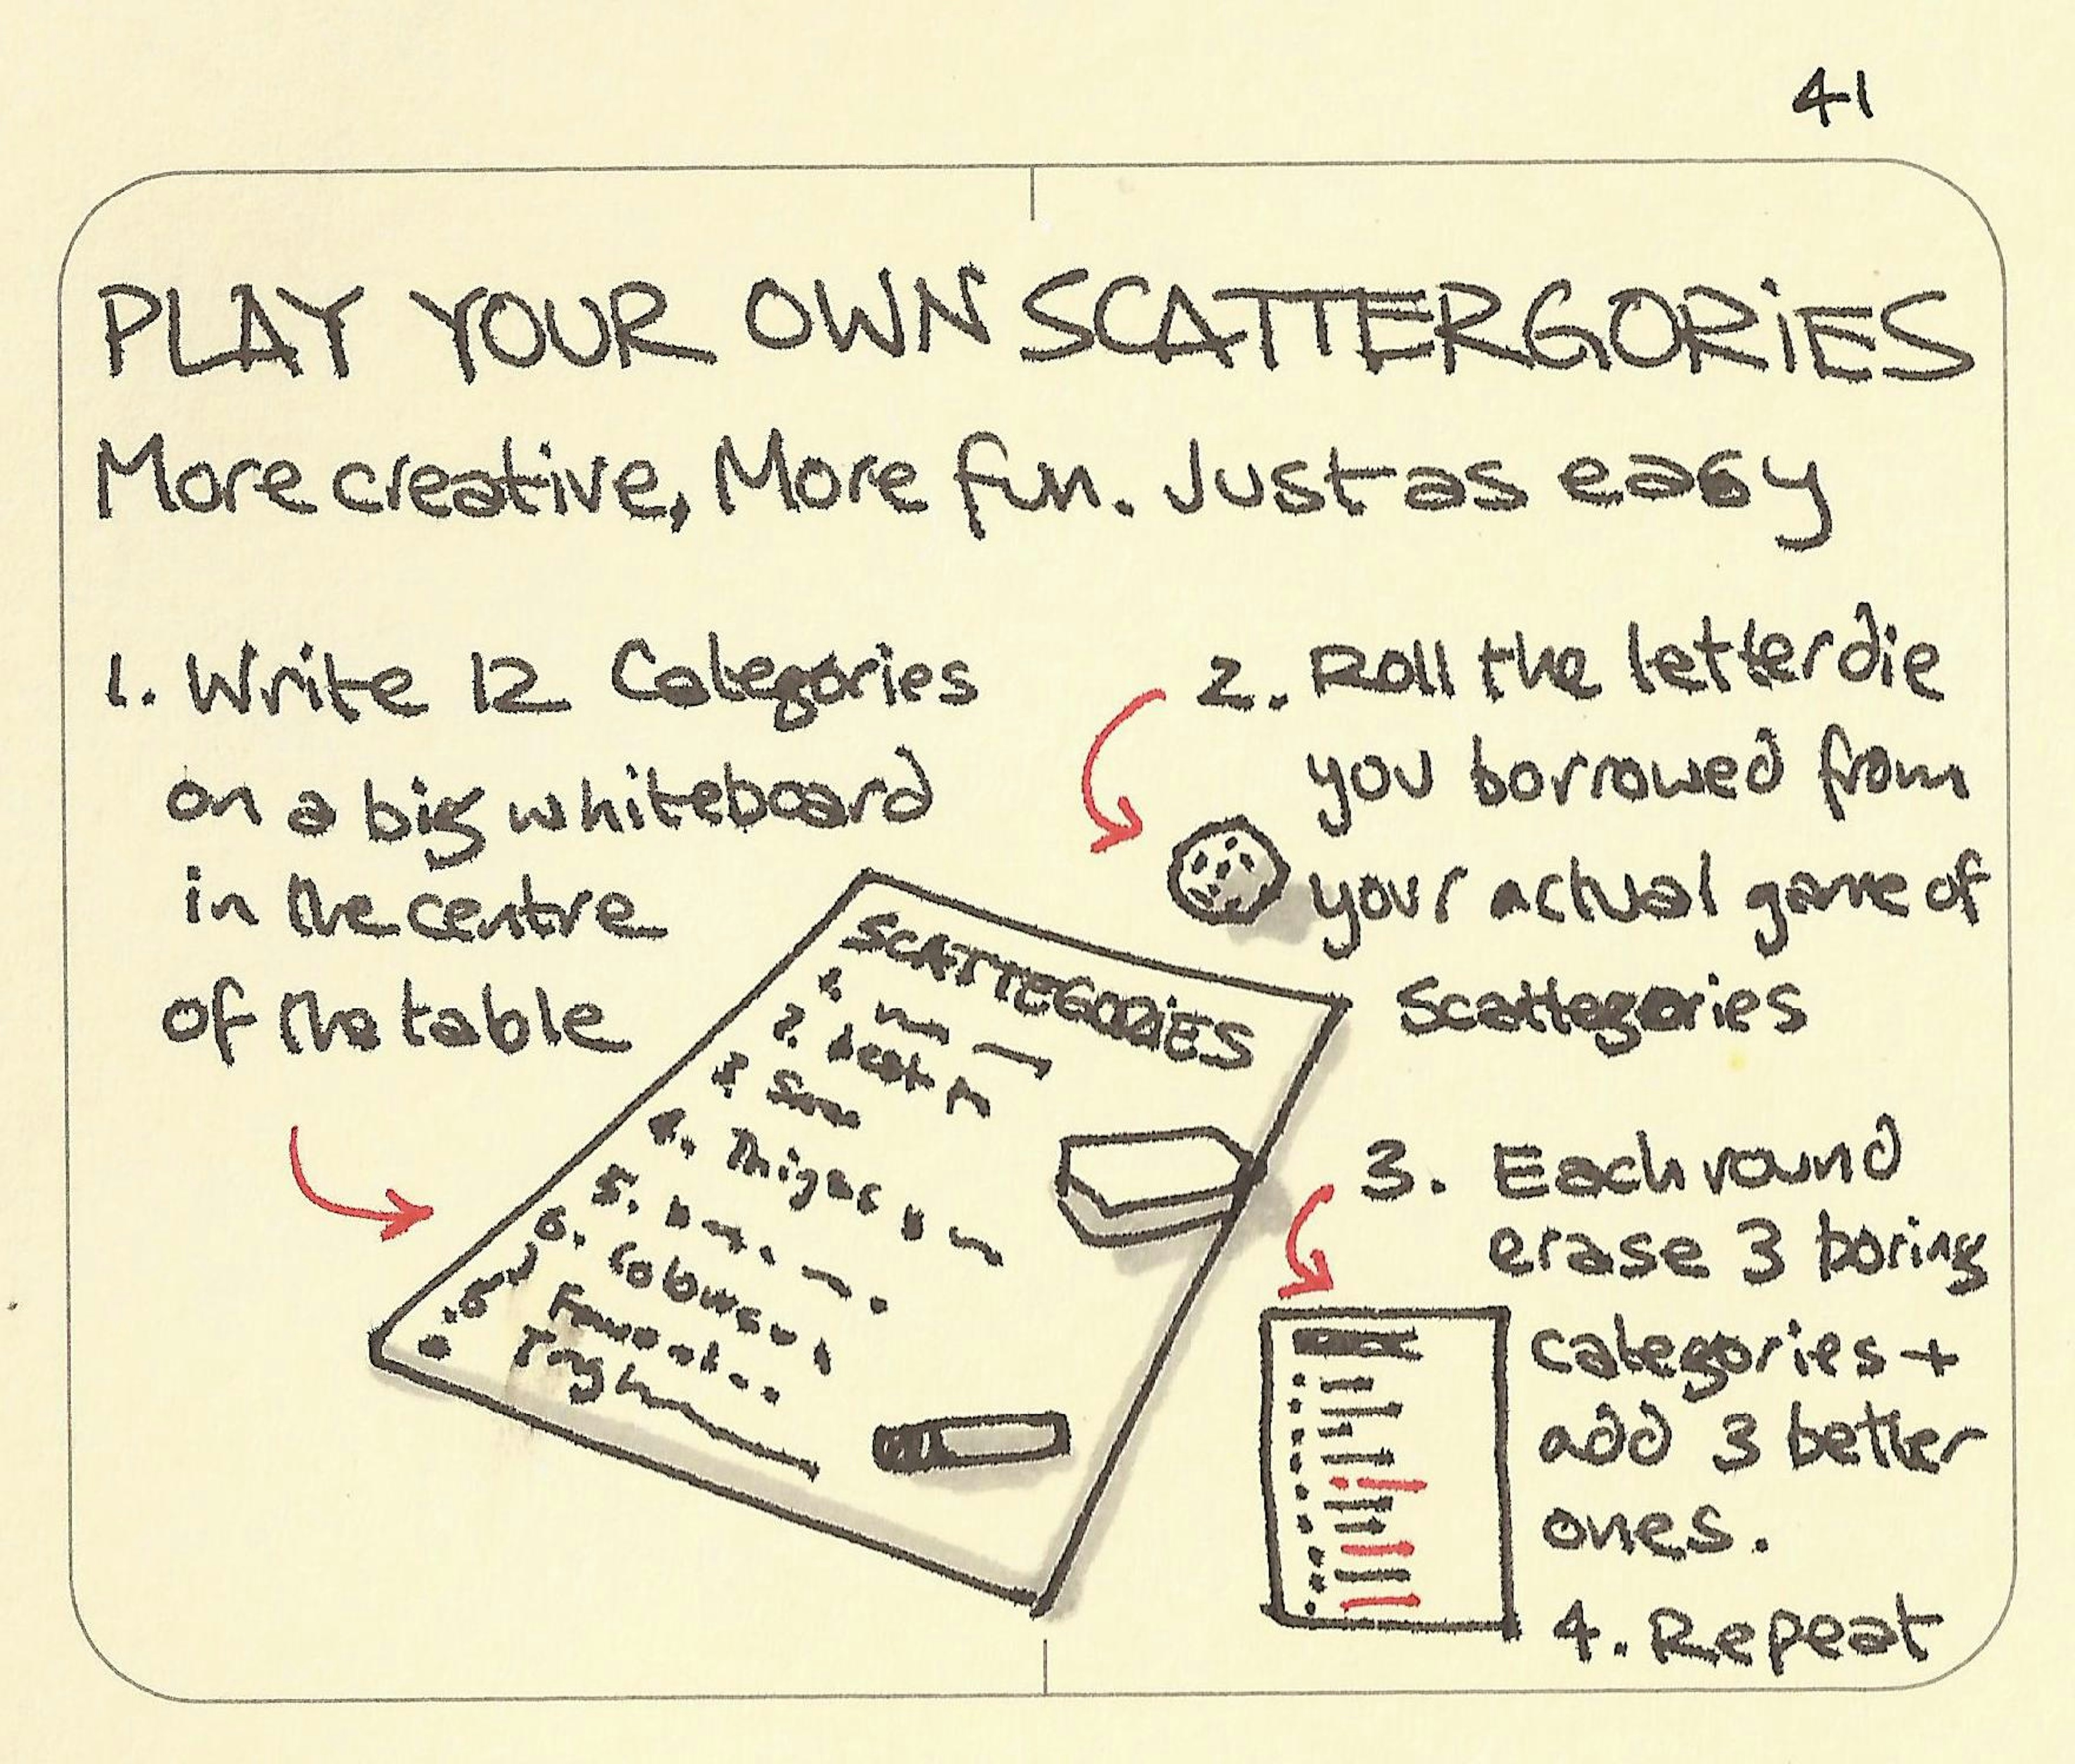 41
PLAY YOUR OWN SCATTERGORiES
More creative, More fun. Just as easy
1. Write 12 Categories
on a big whiteboard
in the centre
of the table
2. Roll the letter die
you borrowed from
your actual game of
Scattegories
SCATTEGORiES
1.
2. best
3.
4. Things
5.
6.
3. Each round
erase 3 boring
categories +
add 3 better
ones.
4. Repeat